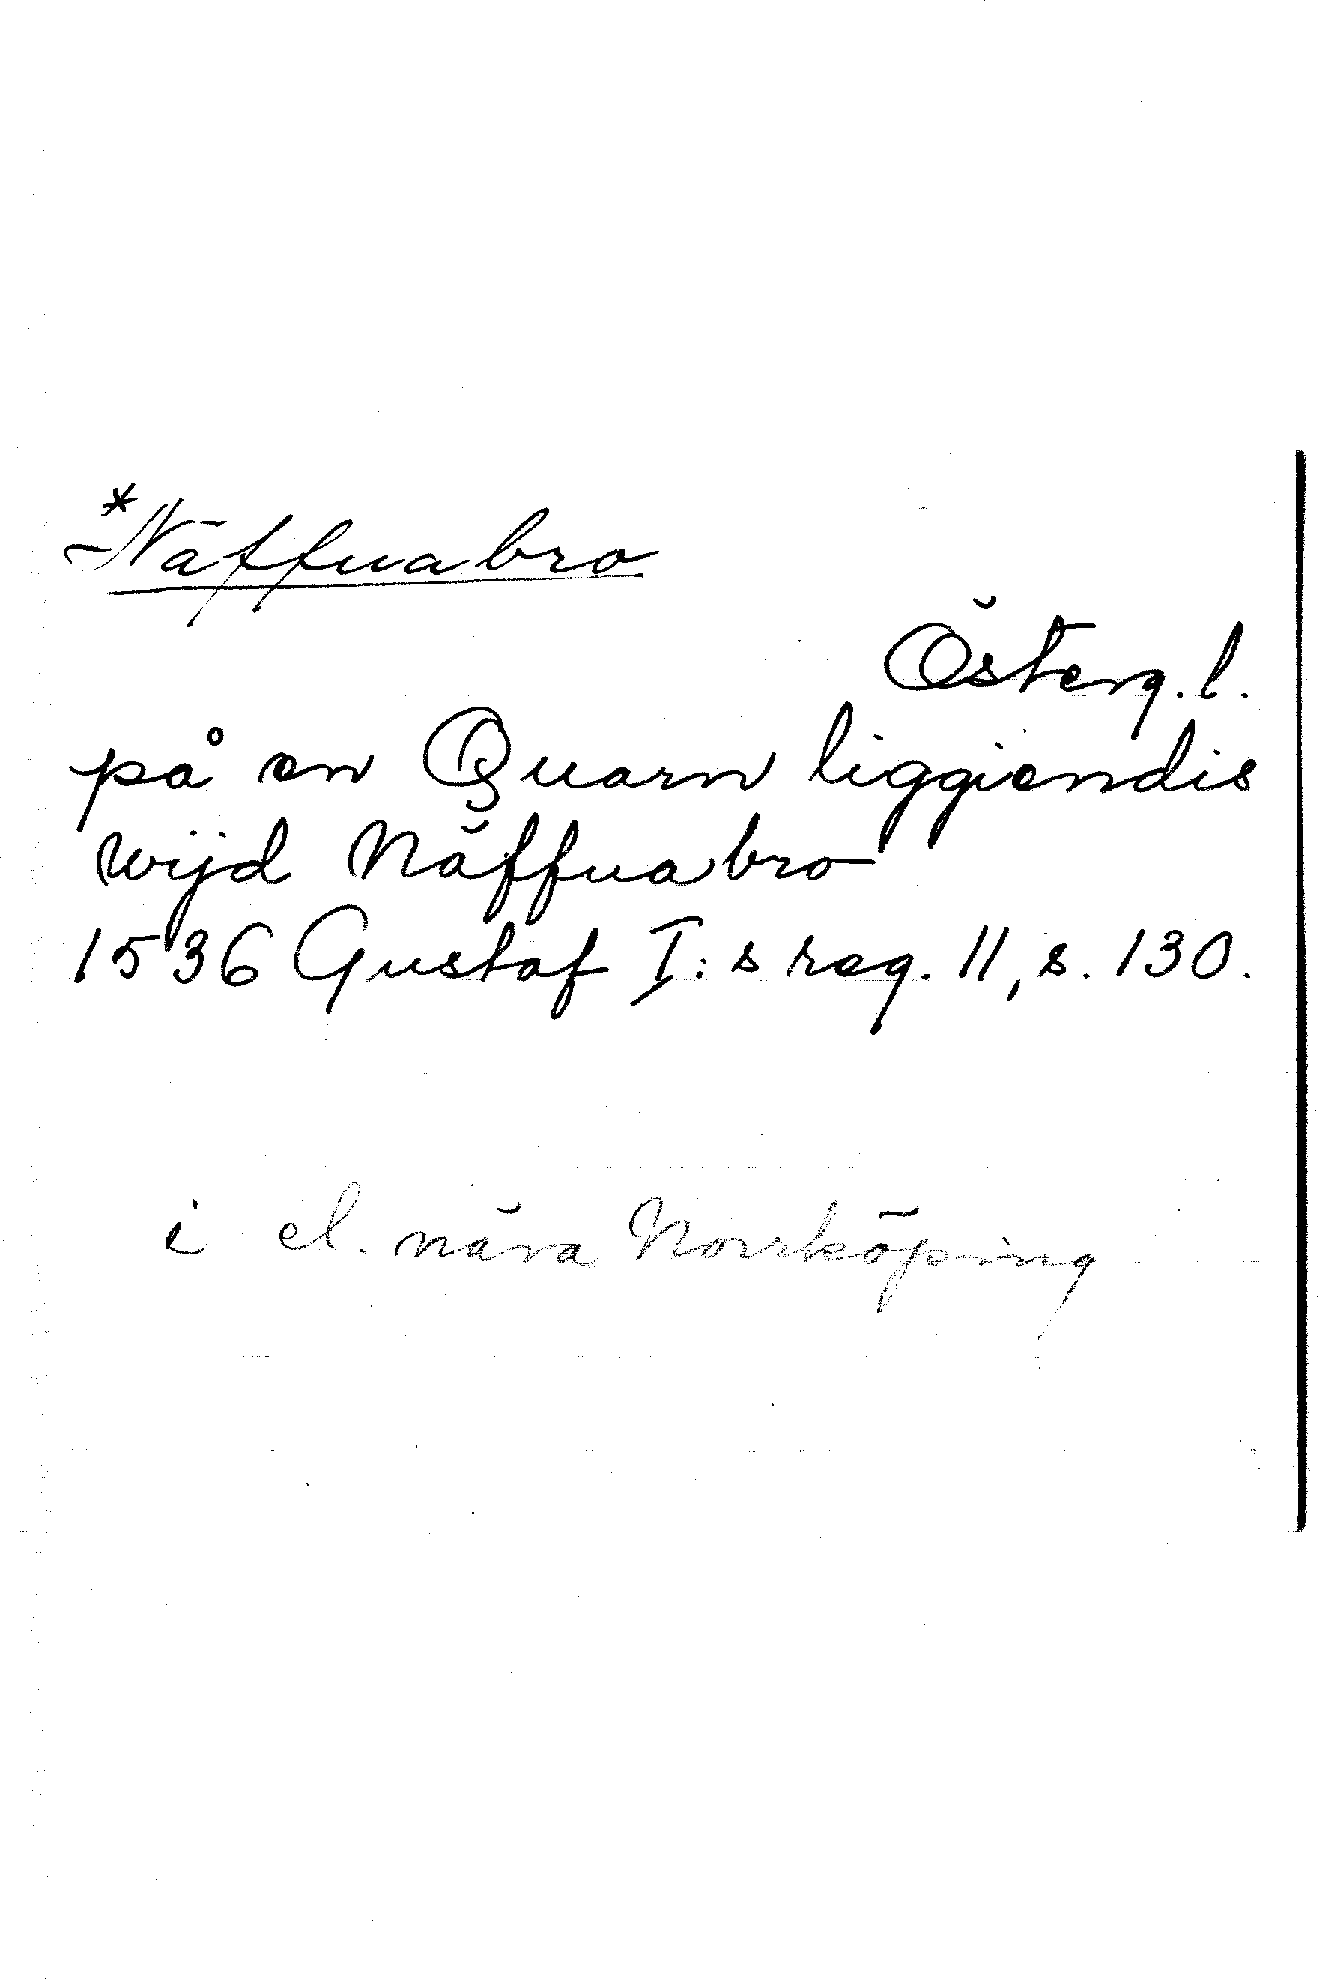 *Näffuabro
Österg. l.
på en Quarn liggiendis
wijd Näffuabro
1536 Gustaf I:s reg. 11, s. 130.
i el. nära Norrköping